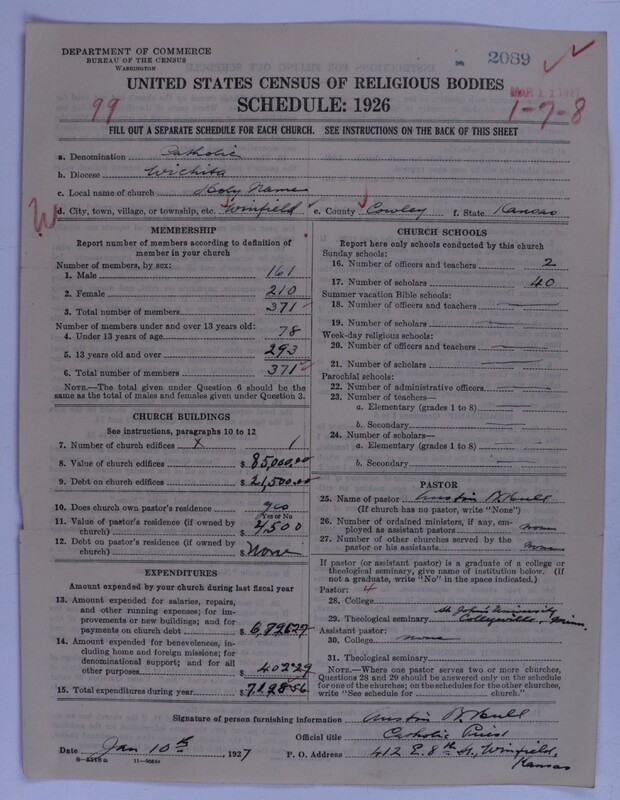 DEPARTMENT OF COMMERCE
BUREAU OF THE CENSUS
WASHINGTON
2089
UNITED STATES CENSUS OF RELIGIOUS BODIES
SCHEDULE: 1926
99
1-7-8
FILL OUT A SEPARATE SCHEDULE FOR EACH CHURCH. SEE INSTRUCTIONS ON THE BACK OF THIS SHEET
a. Denomination Catholic
b. Diocese Wichita
c. Local name of church Holy Name
d. City, town, village, or township, etc. Winfield e. County Cowley f. State Kansas
MEMBERSHIP
Report number of members according to definition of
member in your church
Number of members, by sex:
1. Male 161
2. Female 210
3. Total number of members 371
Number of members under and over 13 years old:
4. Under 13 years of age 78
5. 13 years old and over 293
6. Total number of members 371
NOTE.—The total given under Question 6 should be the
same as the total of males and females given under Question 3.
CHURCH BUILDINGS
See instructions, paragraphs 10 to 12
7. Number of church edifices x 1
8. Value of church edifices $ 85,000.00
9. Debt on church edifices $ 21,500.00
10. Does church own pastor's residence yes
Yes or No
11. Value of pastor's residence (if owned by
church) $ 4,500
12. Debt on pastor's residence (if owned by
church) $ None
EXPENDITURES
Amount expended by your church during last fiscal year
13. Amount expended for salaries, repairs,
and other running expenses; for im-
provements or new buildings; and for
payments on church debt $
14. Amount expended for benevolences, in-
cluding home and foreign missions; for
denominational support; and for all
other purposes $ 402 29
15. Total expenditures during year $
CHURCH SCHOOLS
Report here only schools conducted by this church
Sunday schools:
16. Number of officers and teachers 2
17. Number of scholars 40
Summer vacation Bible schools:
18. Number of officers and teachers
19. Number of scholars
Week-day religious schools:
20. Number of officers and teachers
21. Number of scholars
Parochial schools:
22. Number of administrative officers
23. Number of teachers—
a. Elementary (grades 1 to 8)
b. Secondary
24. Number of scholars—
a. Elementary (grades 1 to 8)
b. Secondary
PASTOR
25. Name of pastor Austin
(If church has no pastor, write "None")
26. Number of ordained ministers, if any, em-
ployed as assistant pastors None
27. Number of other churches served by the
pastor or his assistants None
If pastor (or assistant pastor) is a graduate of a college or
theological seminary, give name of institution below. (If
not a graduate, write "No" in the space indicated.)
Pastor: 4
28. College
St John's University
29. Theological seminary Collegeville, Minn.
Assistant pastor:
30. College none
31. Theological seminary
NOTE.—Where one pastor serves two or more churches,
Questions 28 and 29 should be answered only on the schedule
for one of the churches; on the schedules for the other churches,
write "See schedule for church."
Signature of person furnishing information Austin
Official title Catholic Priest
Date Jan 10th, 1927 P. O. Address 412 E. 8th St., Winfield,
Kansas